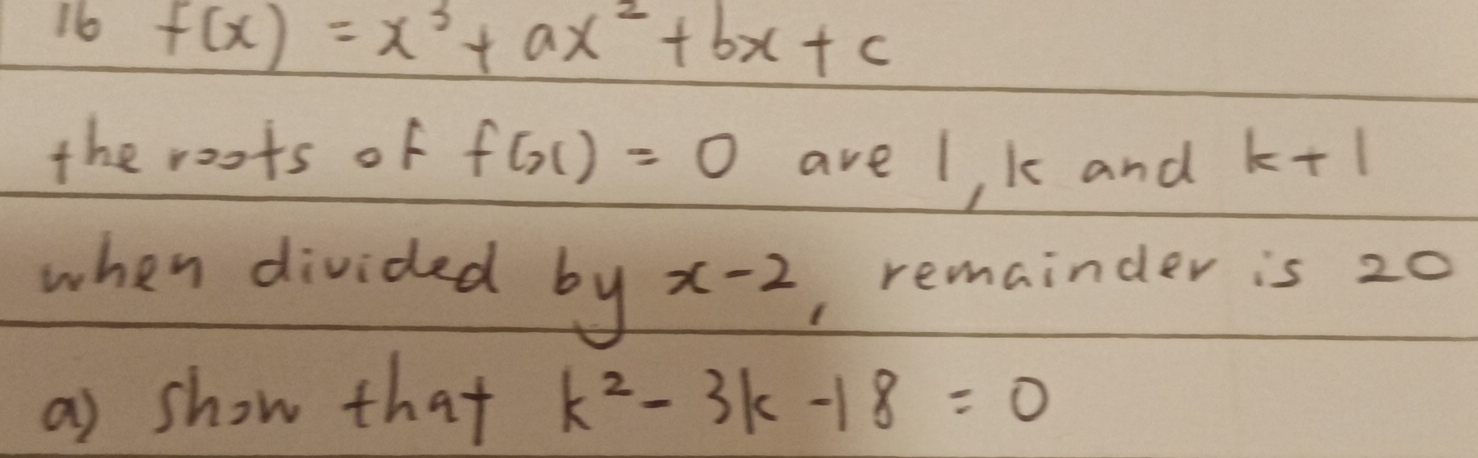 16 f(x) = x³ + ax² + bx + c
the roots of f(x) = 0 are 1, k and k+1
when divided by x-2, remainder is 20
a) show that k² - 3k - 18 = 0